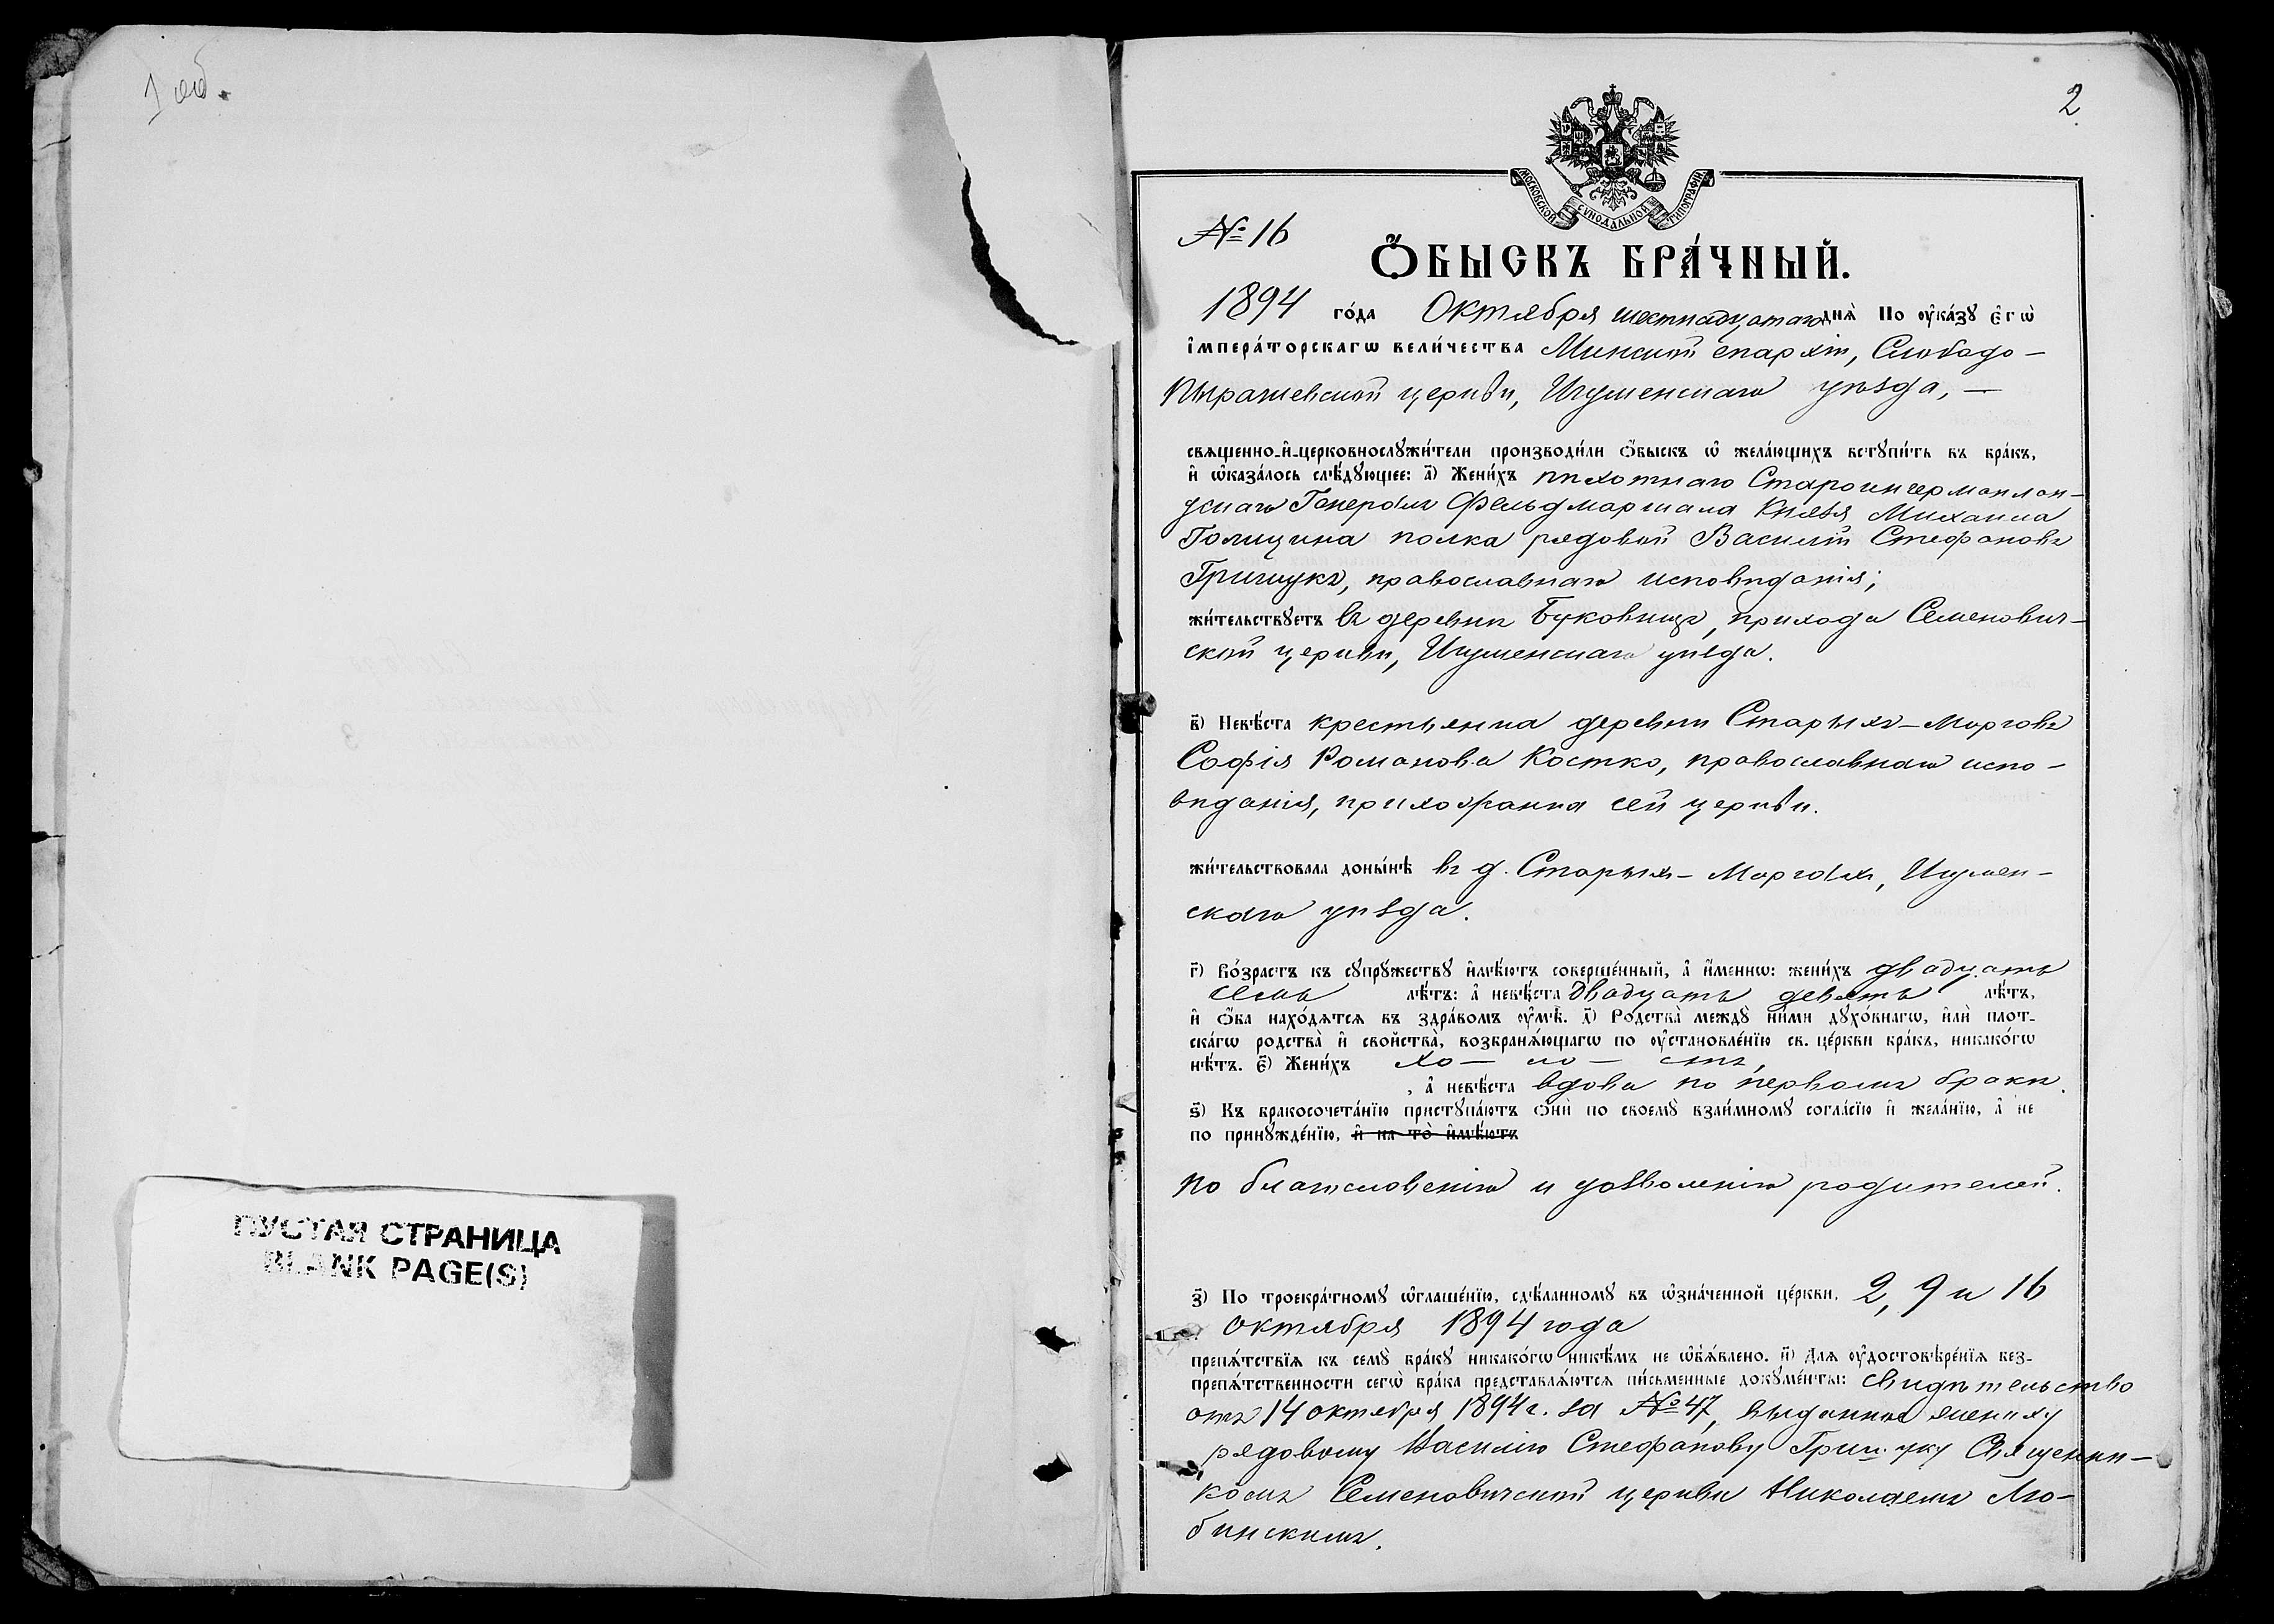 1 об.
ПУСТАЯ СТРАНИЦА
BLANK PAGE(S)
2
МОСКОВСКОЙ СУНОДАЛЬНОЙ ТИПОГРАФІИ
№ 16
Ѻ҆БЫСКЪ БРА́ЧНЫЙ.
1894 го́да Октября шестнадцатаго днѧ̀ По ᲂу҆ка́зꙋ є҆гѡ̀
і҆мпера́торскагѡ вели́чества Минской епархіи, Слободо-
Пырашевской церкви, Игуменскаго уѣзда, —
свѧщенно-и҆-церковнослꙋжи́тели производи́ли ѻ҆́быскъ ѡ҆ жела́ющихъ встꙋпи́ть въ бра́къ,
и҆ ѡ҆каза́лось слѣ́дꙋющее: а҃) Жени́хъ пѣхотнаго Староингерманлан-
дскаго Генералъ Фельдмаршала Князя Михаила
Голицина полка рядовой Василій Стефановъ
Грищукъ, православнаго исповѣданія;
жи́тельствꙋетъ въ деревнѣ Буковицѣ, прихода Семенович-
ской церкви, Игуменскаго уѣзда.
в҃) Невѣ́ста крестьянка деревни Старыхъ-Морговъ
Софія Романова Костко, православнаго испо-
вѣданія, прихожанка сей церкви.
жи́тельствовала доны́нѣ въ д. Старыхъ-Моргахъ, Игумен-
скаго уѣзда.
г҃) Во́зрастъ къ сꙋпрꙋ́жествꙋ и҆мѣ́ютъ соверше́нный, а҆ и҆́меннѡ: жени́хъ двадцать
семь лѣ́тъ: а҆ невѣ́ста двадцать девять лѣ́тъ,
и҆ ѻ҆́ба нахо́дѧтсѧ въ здра́вомъ ᲂу҆мѣ̀. д҃) Родства̀ междꙋ̀ ни́ми дꙋхо́внагѡ, и҆лѝ плот-
ска́гѡ родства̀ и҆ сво́йства̀, возбранѧ́ющагѡ по ᲂу҆становле́нїю св. це́ркви бра́къ, никако́гѡ
нѣ́тъ. є҃) Жени́хъ хо — ло — стъ,
, а҆ невѣ́ста вдова по первомъ бракѣ.
ѕ҃) Къ бракосочета́нїю пристꙋпа́ютъ ѻ҆нѝ по своемꙋ̀ взаи́мномꙋ согла́сїю и҆ жела́нїю, а҆ не
по принꙋжде́нїю, и҆ на то̀ и҆мѣ́ютъ
по благословенію и дозволенію родителей.
з҃) По троекра́тномꙋ ѡ҆глаше́нїю, сдѣ́ланномꙋ въ ѡ҆зна́ченной це́ркви, 2, 9 и 16
октября 1894 года
препѧ́тствїѧ къ семꙋ̀ бра́кꙋ никако́гѡ никѣ́мъ не ѡ҆б̾ѧ́влено. и҃) Длѧ ᲂу҆достовѣре́нїѧ без-
препѧ́тственности сегѡ̀ бра́ка представлѧ́ютсѧ пи́сьменные докꙋме́нты: свидѣтельство
отъ 14 октября 1894 г. за № 47, выданное жениху
рядовому Василію Стефанову Грищуку Священни-
комъ Семеновичской церкви Николаемъ Лю-
бинскимъ.